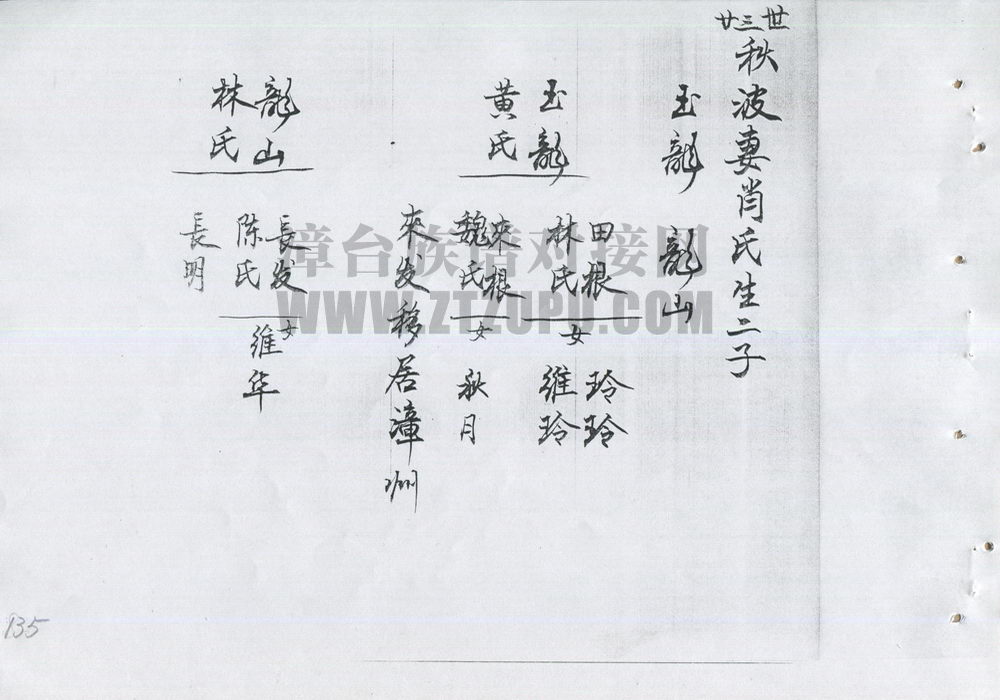 廿三世
秋波妻肖氏生二子
玉龍 龍山
玉龍
黄氏
田根
林氏
女 玲玲
維玲
來根
魏氏
女 秋月
來发移居漳州
龍山
林氏
長发
陈氏
女 維华
長明
漳台族谱对接网
WWW.ZTZUPU.COM
135